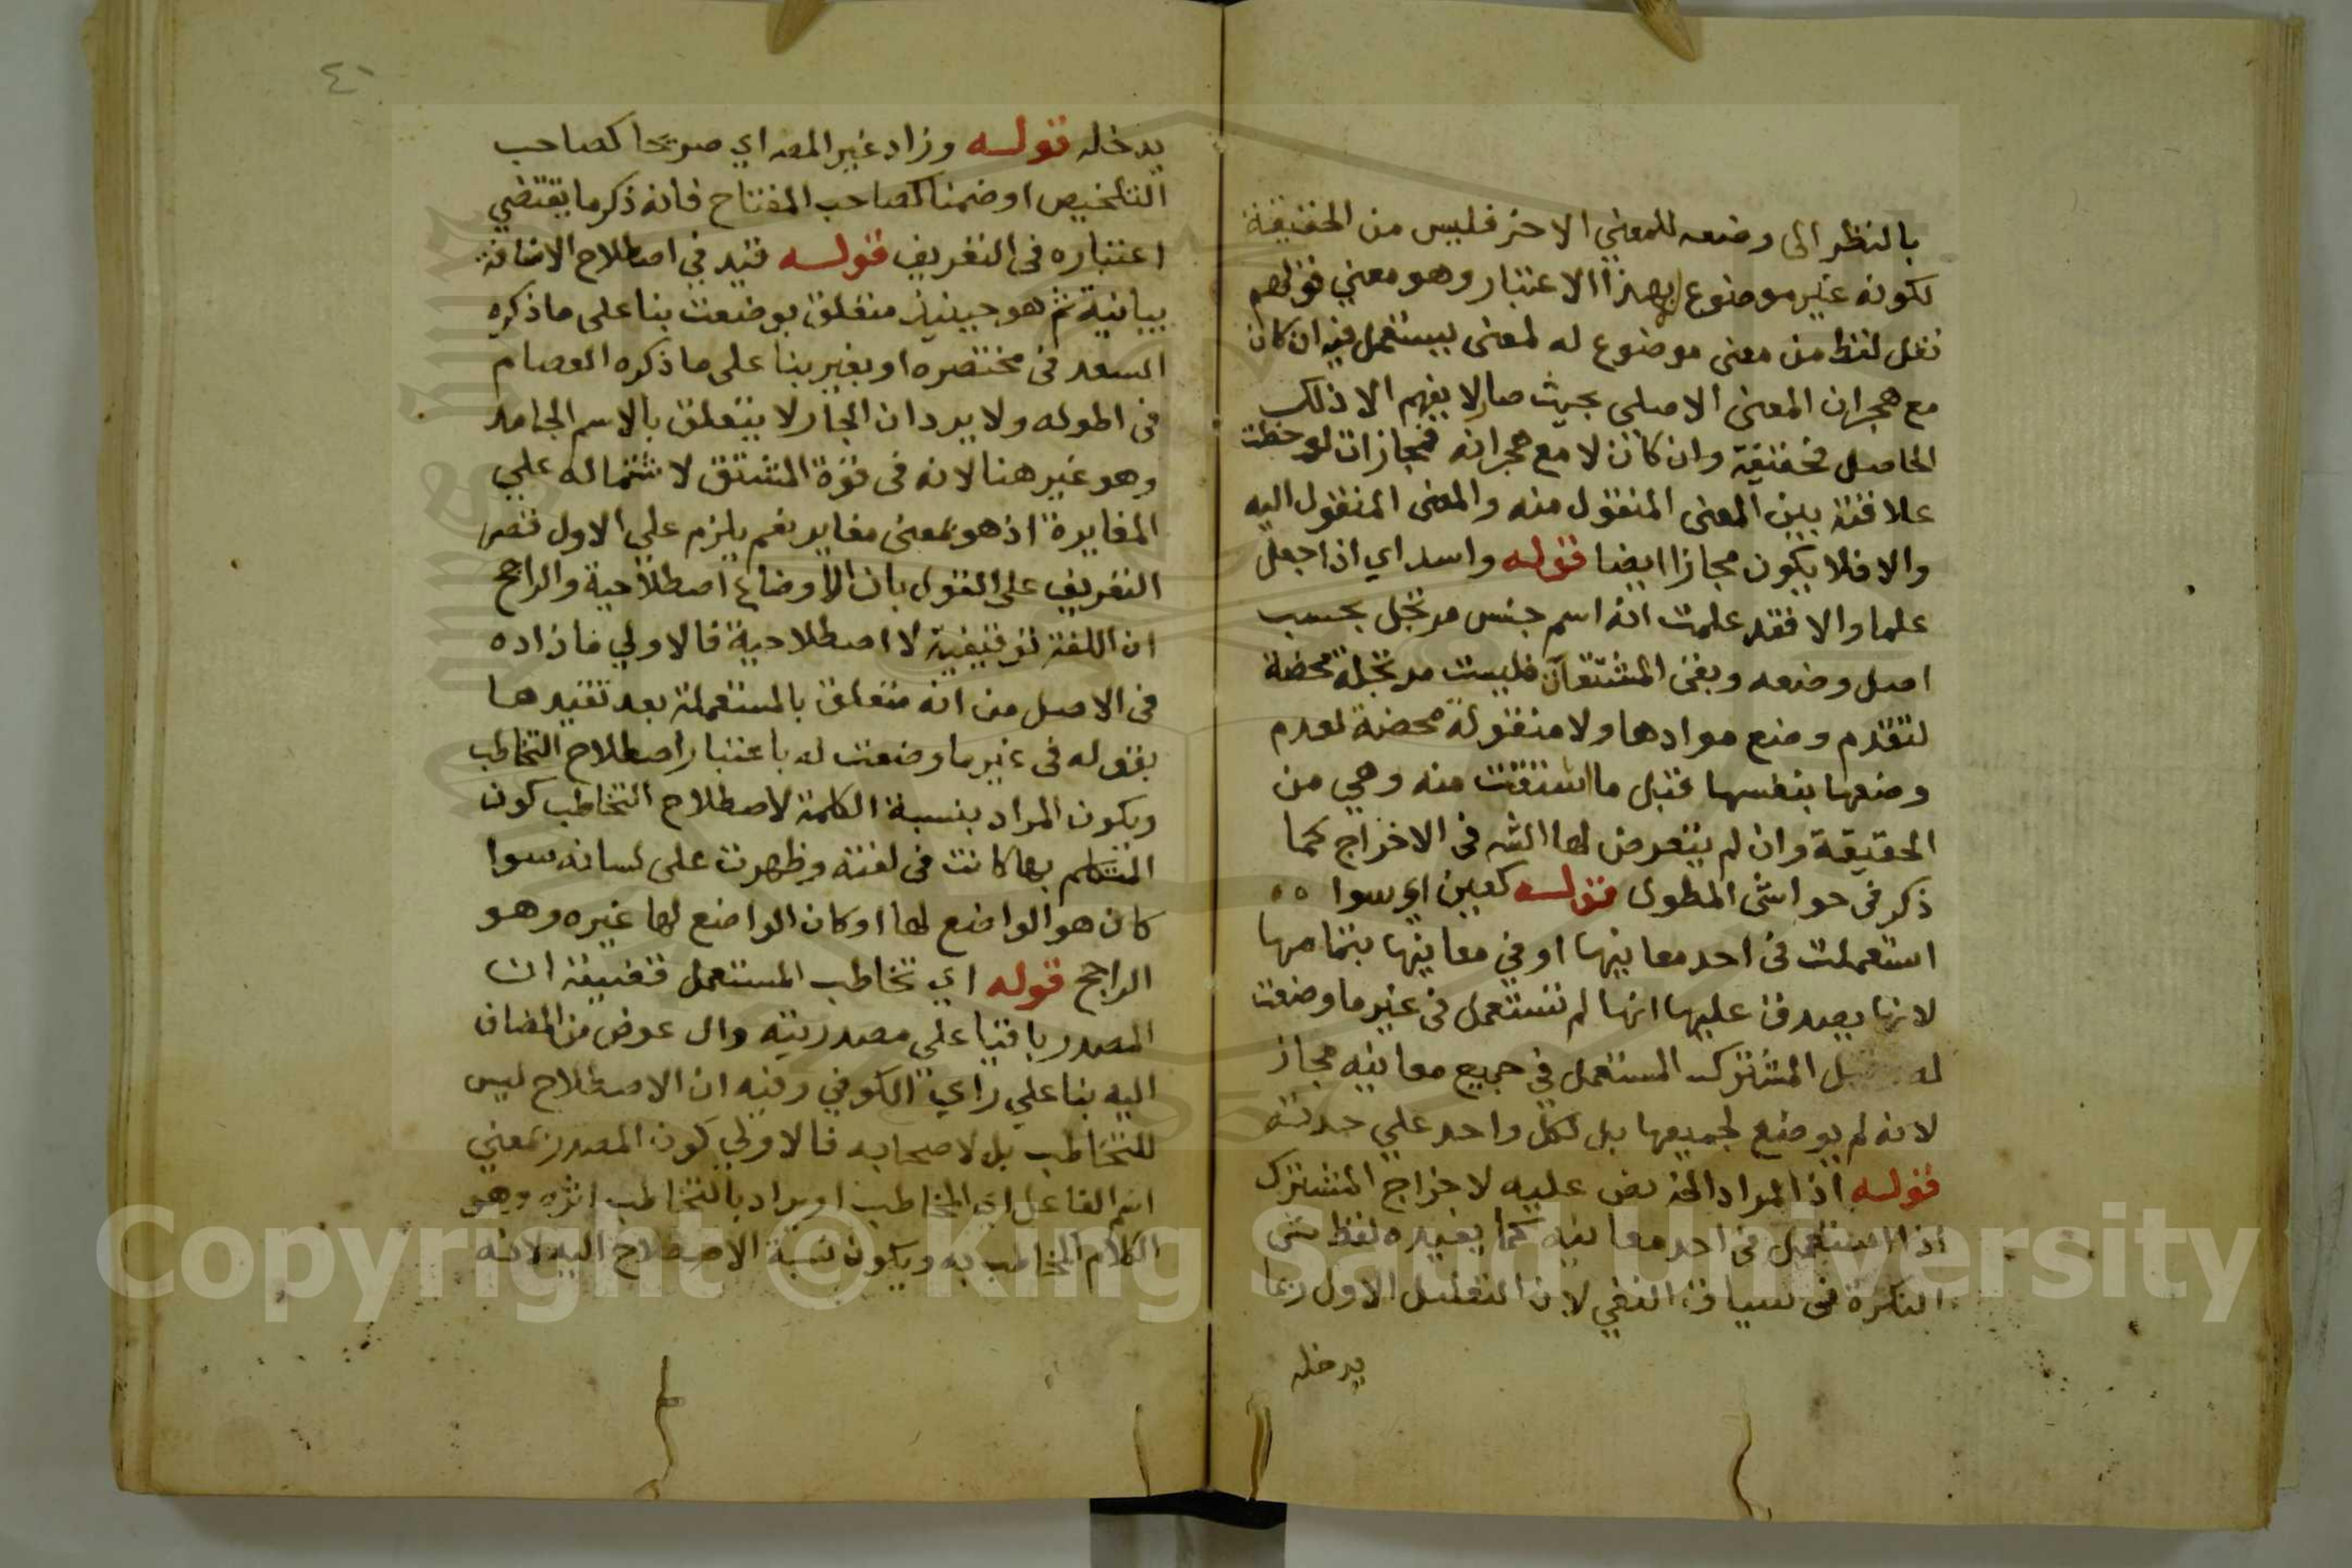 بالنظر الى وضعه للمعني الاخر فليس من الحقيقة
لكونه غير موضوع بهذا الاعتبار وهو معني قولهم
نقل لفظ من معنى موضوع له لمعنى يستعمل فيه ان كان
مع هجران المعنى الاصلي بحيث صار لا يفهم الا ذلك
الحاصل فحقيقة وان كان لا مع هجرانه فمجاز ان لوحظت
علاقة بين المعنى المنقول منه والمعنى المنقول اليه
والا فلا يكون مجازا ايضا قوله واسد اي اذا جعل
علما والا فقد علمت انه اسم جنس مرتجل بحسب
اصل وضعه وبقى المشتقات فليست مرتجلة محضة
لتقدم وضع موادها ولا منقولة محضة لعدم
وضعها بنفسها قبل ما اشتقت منه وهي من
الحقيقة وان لم يتعرض لها الشه في الاخراج كما
ذكر في حواشى المطول قوله كعين اي سوا ه ه
استعملت فى احد معانيها او في معانيها بتمامها
لانها يصدق عليها انها لم تستعمل فى غير ما وضعت
له المشترك المستعمل في جميع معانيه مجاز
لانه لم يوضع لجميعها بل لكل واحد علي حدته
قوله اذ المراد الخ نص عليه لاخراج المشترك
اذا استعمل فى احد معانيه كما يفيده لفظ شى
النكرة فى سياق النفي لان التعليل الاول ربما
يدخله
٤١
يدخله قوله وزاد غير المصه اي صريحا كصاحب
التلخيص او ضمنا كصاحب المفتاح فانه ذكر ما يقتضي
اعتباره فى التعريف قوله قيد في اصطلاح الاضافة
بيانية ثم هو حينيذ متعلق بوضعت بنا على ما ذكره
السعد فى مختصره او بغير بنا على ما ذكره العصام
فى اطوله ولا يرد ان الجار لا يتعلق بالاسم الجامد
وهو غير هنا لانه فى قوة المشتق لاشتماله علي
المغايرة اذ هو بمعنى مغاير نعم يلزم علي الاول قصر
التعريف على القول بان الاوضاع اصطلاحية والراجح
ان اللغة توقيفية لا اصطلاحية فالاولي ما زاده
فى الاصل من انه متعلق بالمستعملة بعد تقيدها
بقوله فى غير ما وضعت له باعتبار اصطلاح التخاطب
ويكون المراد بنسبة الكلمة لاصطلاح التخاطب كون
المتكلم بها كانت فى لغته وظهرت على لسانه سوا
كان هو الواضع لها او كان الواضع لها غيره وهو
الراجح قوله اي تخاطب المستعمل فقضيته ان
المصدر باقيا علي مصدريته وال عوض من المضاف
اليه بنا علي راي الكوفي وفيه ان الاصطلاح ليس
للتخاطب بل لاصحابه فالاولي كون المصدر بمعني
اسم الفاعل اي المخاطب او يراد بالتخاطب اثره وهو
الكلام المخاطب به ويكون نسبة الاصطلاح اليه لانه
Copyright © King Saud University